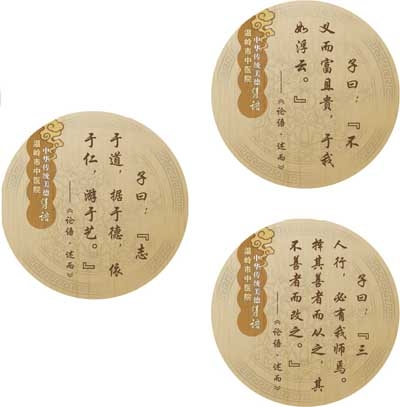 子曰：『志
于道，据于德，依
于仁，游于艺。』
——《论语·述而》
中华传统美德
温岭市中医院
子曰：『不
义而富且贵，于我
如浮云。』
——《论语·述而》
中华传统美德
温岭市中医院
子曰：『三
人行，必有我师焉。
择其善者而从之，其
不善者而改之。』
——《论语·述而》
中华传统美德
温岭市中医院